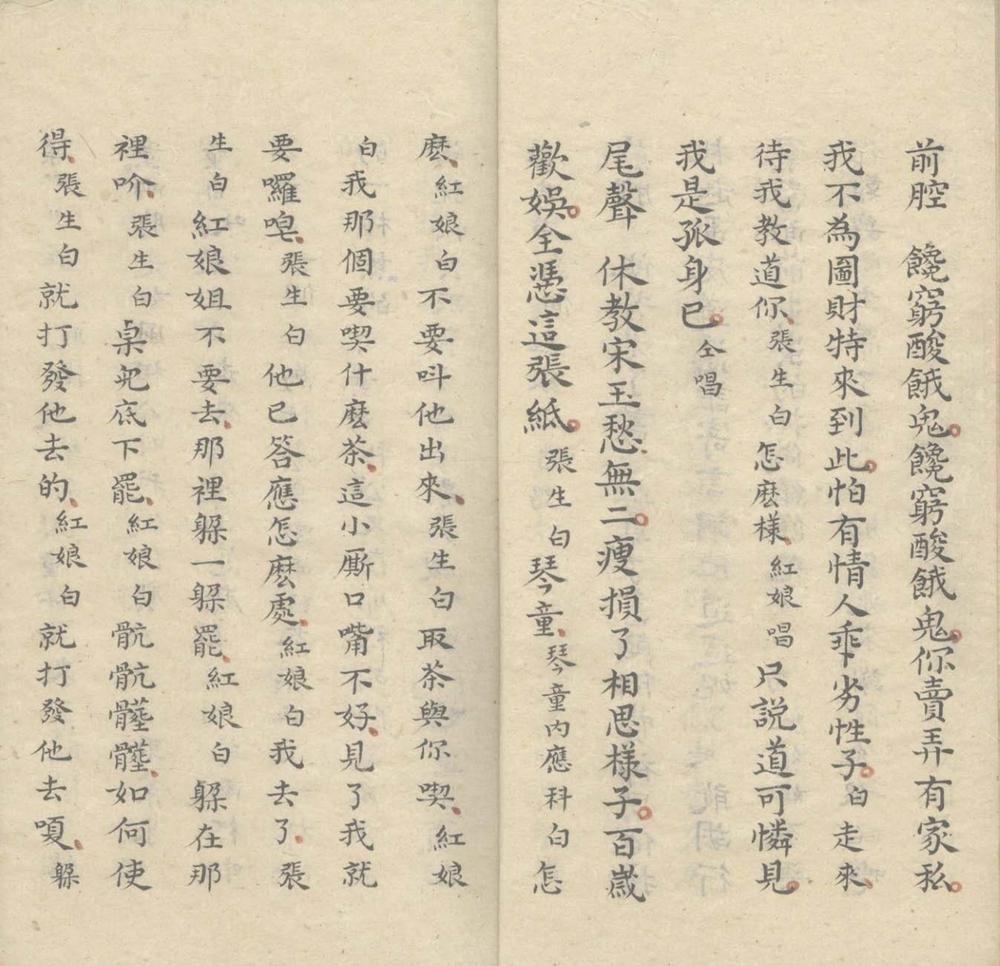 前腔　饞窮酸餓鬼。饞窮酸餓鬼。你賣弄有家私。
我不為圖財特來到此。怕有情人乖劣性子。白走來、
待我教道你、張生白怎麽樣、紅娘唱只説道可憐見。
我是孤身已。仝唱
尾聲　休教宋玉愁無二。瘦損了相思樣子。百歲
歡娛。全憑這張紙。張生白琴童、琴童內應科白怎
麽、紅娘白不要呌他出來、張生白取茶與你喫、紅娘
白我那個要喫什麽茶、這小厮口嘴不好、見了我就
要囉唣、張生白他已答應怎麽處、紅娘白我去了、張
生白紅娘姐不要去、那裡躲一躲罷、紅娘白躲在那
裡吤、張生白桌兒底下罷、紅娘白骯骯髒髒、如何使
得、張生白就打發他去的、紅娘白就打發他去嗄、躲